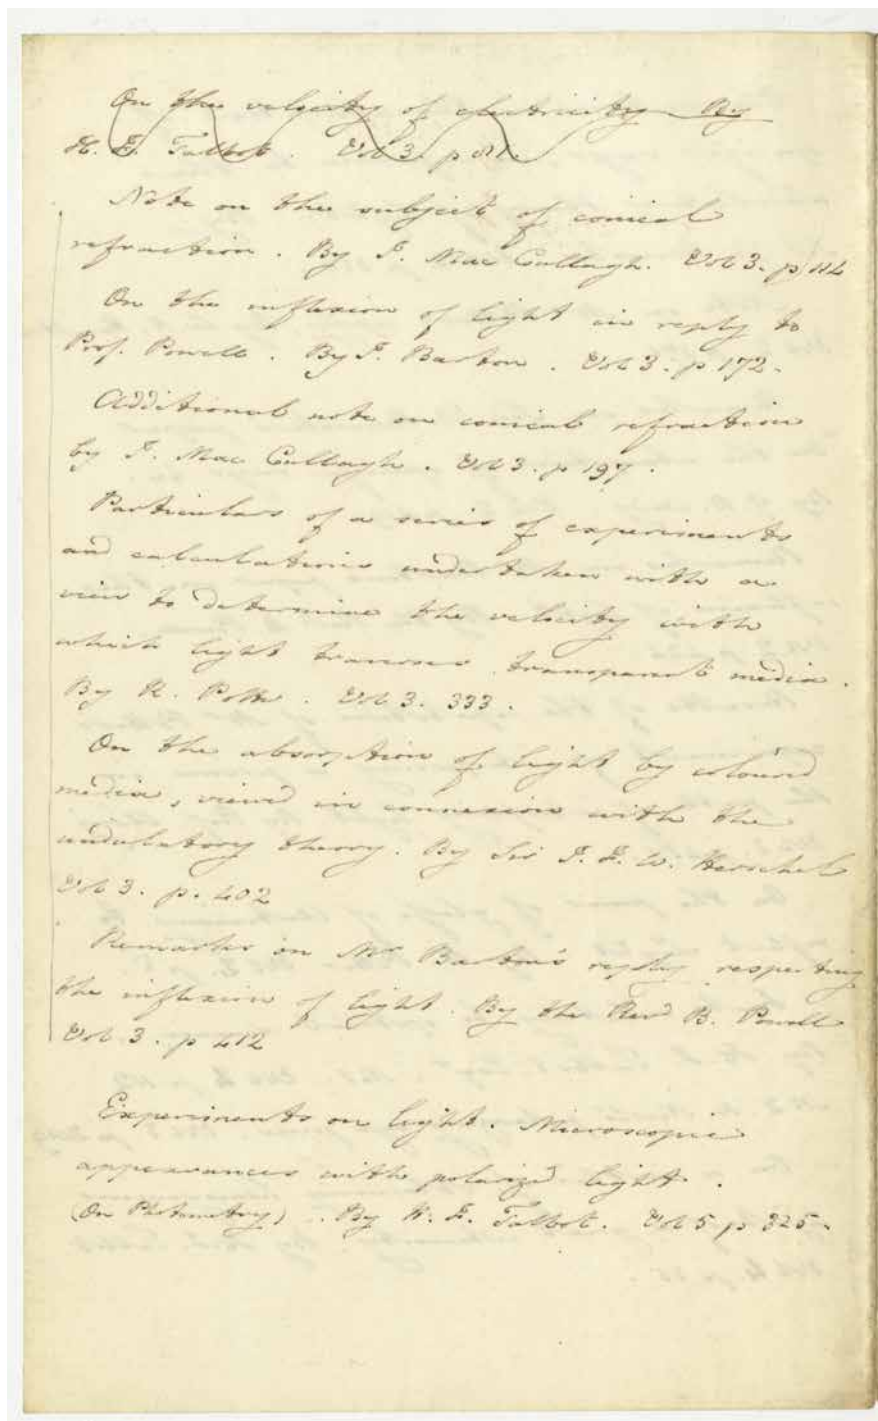 On the velocity of electricity By
H. F. Talbot. Vol 3. p 81.
Note on the subject of conical
refraction. By J. Mac Cullagh. Vol 3. p 114
On the inflexion of light in reply to
Prof. Powell. By J. Barton. Vol 3. p 172.
Additional note on conical refraction
by J. Mac Cullagh. Vol 3. p 197.
Particulars of a series of experiments
and calculations undertaken with a
view to determine the velocity with
which light traverses transparent media.
By R. Potter. Vol 3. 333.
On the absorption of light by coloured
media, viewed in connexion with the
undulatory theory. By Sir J. F. W. Herschel
Vol 3. p. 402
Remarks on Mr Barton's reply respecting
the inflexion of light. By the Revd B. Powell
Vol 3. p 412
Experiments on light. Microscopic
appearances with polarized light.
(On Photometry). By H. F. Talbot. Vol 5 p 325.